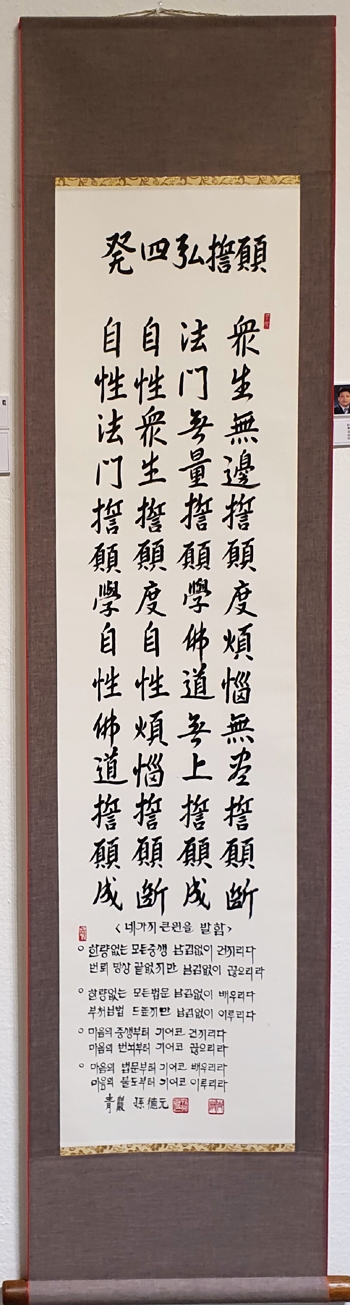 発四弘誓願
衆生無邊誓願度煩惱無尽誓願斷
法門无量誓願學佛道无上誓願成
自性衆生誓願度自性煩惱誓願斷
自性法門誓願學自性佛道誓願成
<네가지 큰원을 발함>
○ 한량없는 모든중생 남김없이 건지리다
번뇌 망상 끝없지만 남김없이 끊으리라
○ 한량없는 모든법문 남김없이 배우리다
부처님법 드높지만 남김없이 이루리라
○ 마음의 중생부터 기어코 건지리다
마음의 번뇌부터 기어코 끊으리라
○ 마음의 법문부터 기어코 배우리다
마음의 불도부터 기어코 이루리라
青巖 孫德元